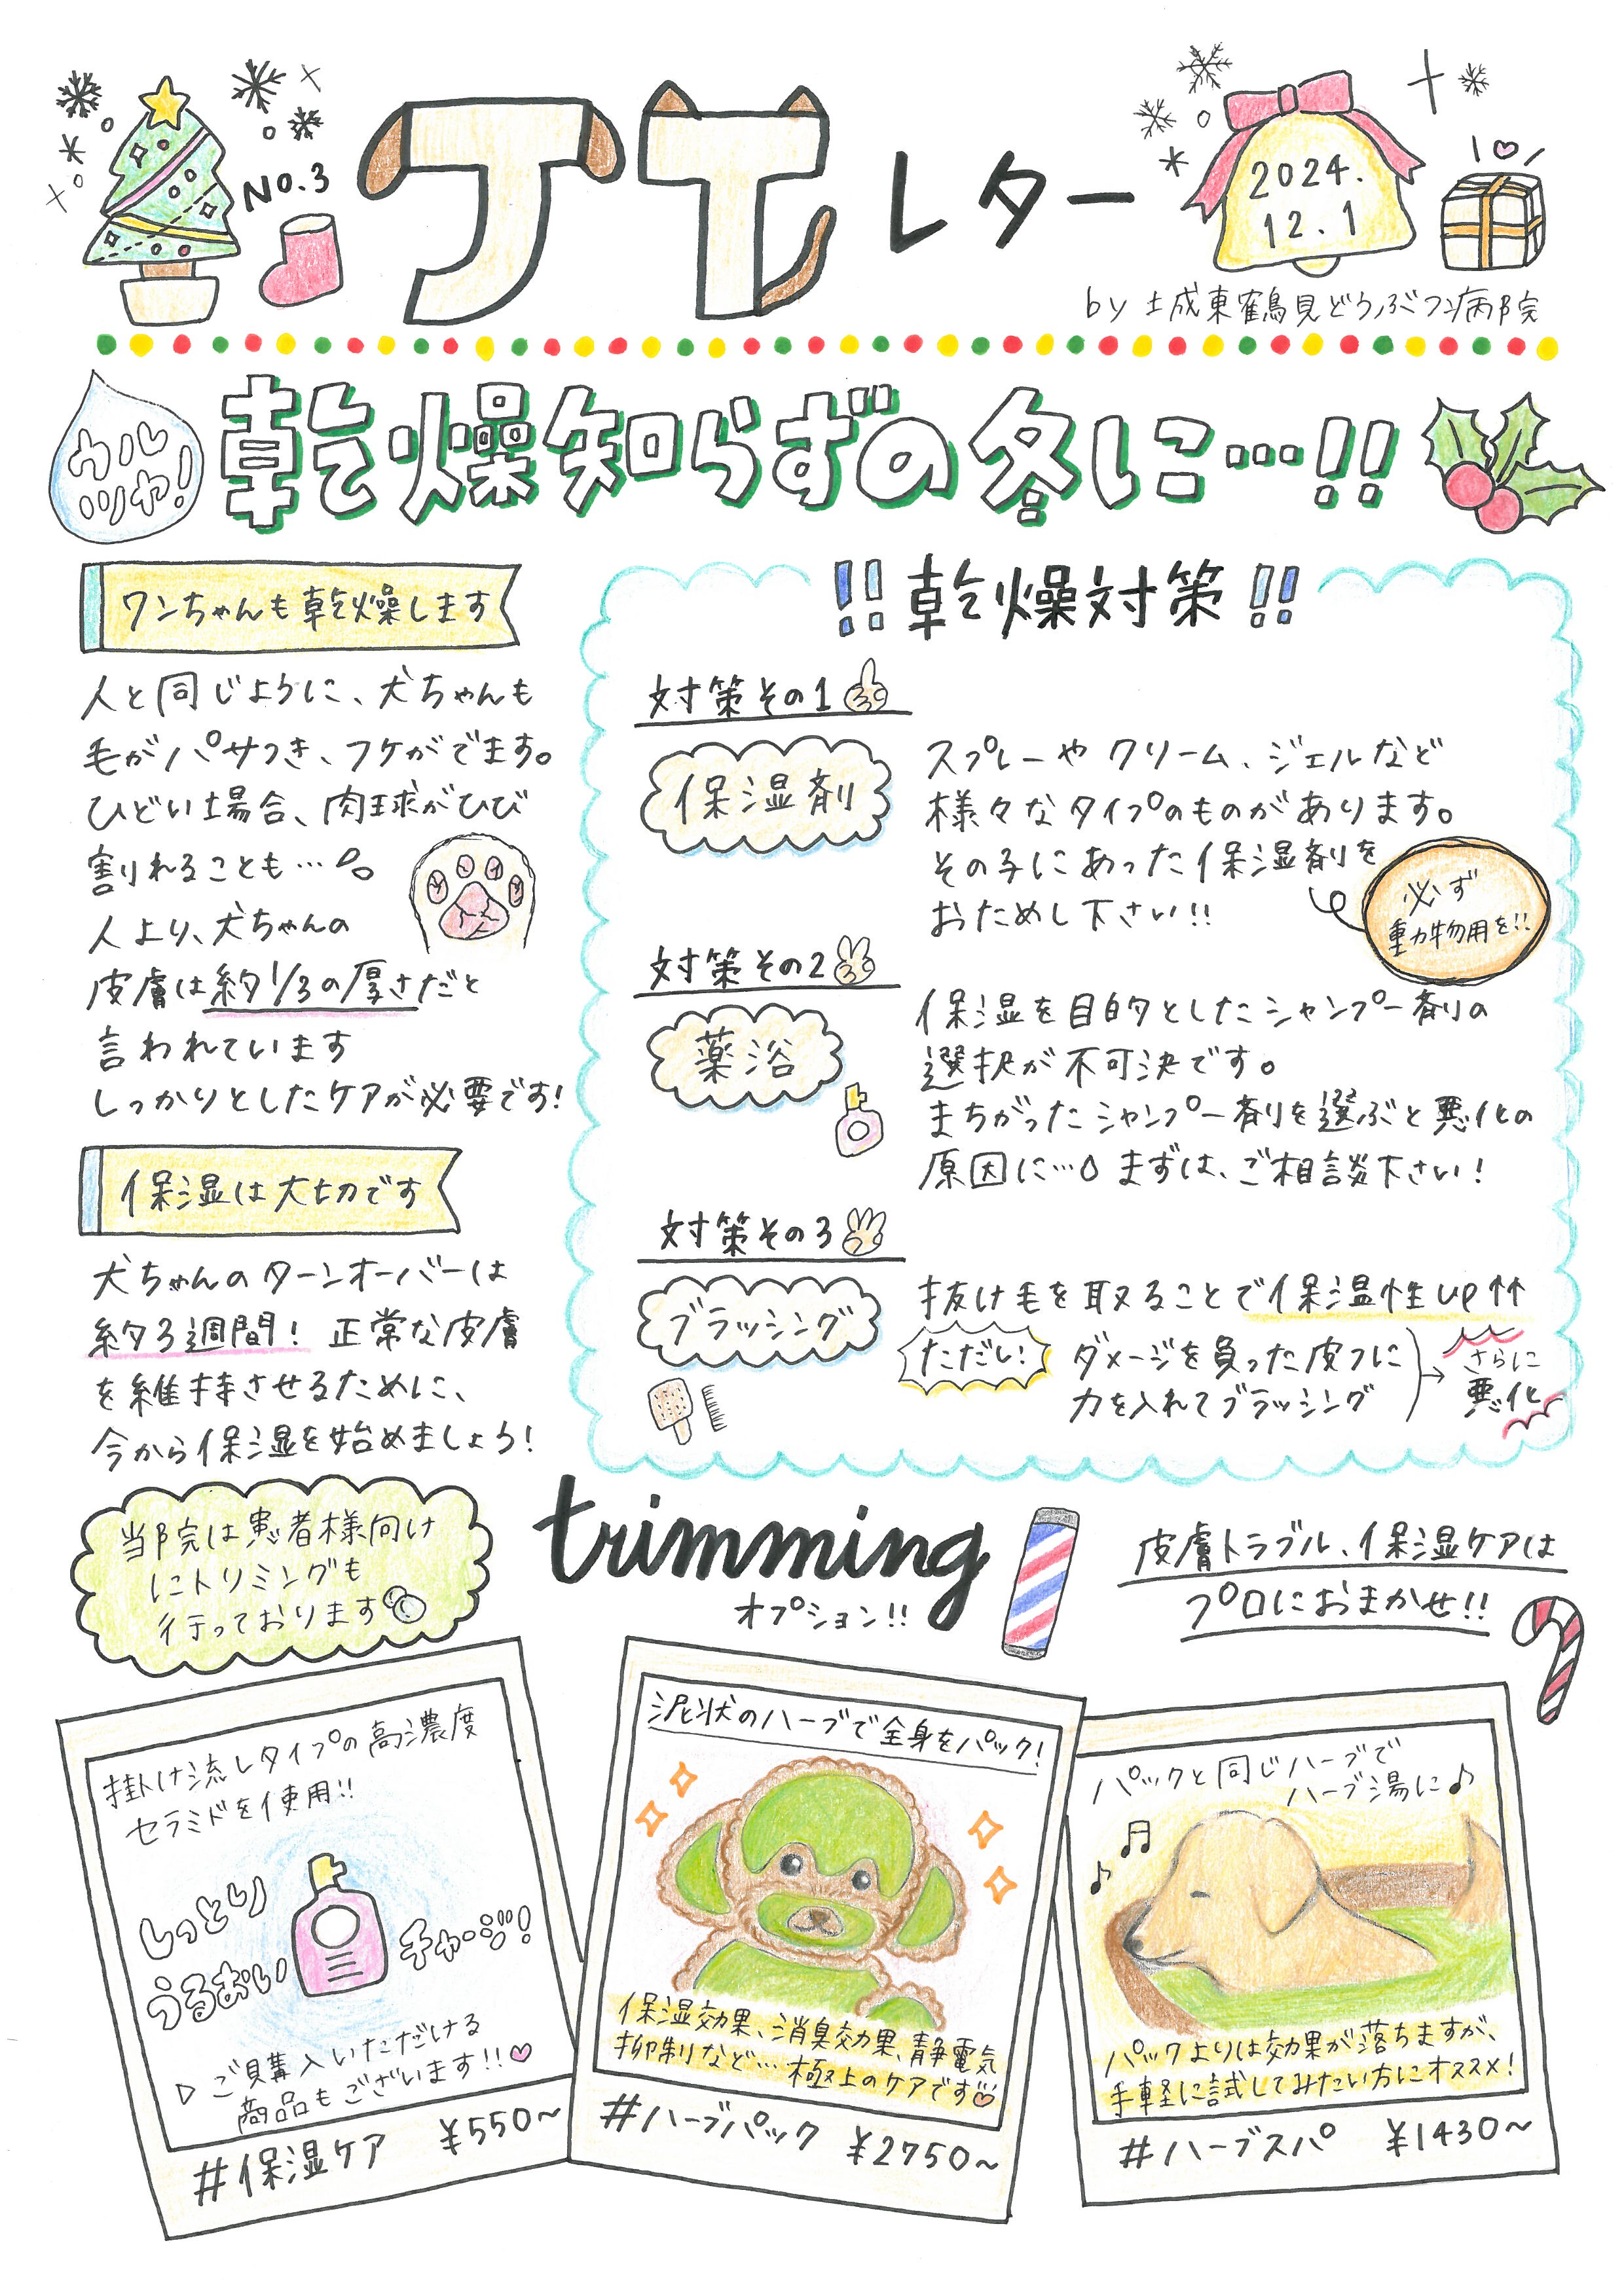 No.3
JTレター
2024.
12.1
by 土成東鶴見どうぶつ病院
ウルツヤ!
乾燥知らずの冬に…!!
ワンちゃんも乾燥します
人と同じように、犬ちゃんも
毛がパサつき、フケがでます。
ひどい場合、肉球がひび
割れることも…
人より、犬ちゃんの
皮膚は約1/3の厚さだと
言われています
しっかりとしたケアが必要です!
保湿は大切です
犬ちゃんのターンオーバーは
約3週間! 正常な皮膚
を維持させるために、
今から保湿を始めましょう!
!!乾燥対策!!
対策その1
保湿剤
スプレーや クリーム、ジェルなど
様々なタイプのものがあります。
その子にあった保湿剤を
おためし下さい!!
必ず
動物用を!!
対策その2
薬浴
保湿を目的としたシャンプー剤の
選択が不可決です。
まちがったシャンプー剤を選ぶと悪化の
原因に… まずは、ご相談下さい!
対策その3
ブラッシング
抜け毛を取ることで保温性up↑↑
ただし!
ダメージを負った皮フに
力を入れてブラッシング
→
さらに
悪化
当院は患者様向け
にトリミングも
行っております
trimming
オプション!!
皮膚トラブル、保湿ケアは
プロにおまかせ!!
掛け流しタイプの高濃度
セラミドを使用!!
しっとり
うるおい
チャージ!
▷ ご購入いただける
商品もございます!!♡
#保湿ケア ¥550~
泥状のハーブで全身をパック!
保湿効果、消臭効果、静電気
抑制など… 極上のケアです♡
#ハーブパック ¥2750~
パックと同じハーブで
ハーブ湯に♪
パックよりは効果が落ちますが、
手軽に試してみたい方にオススメ!
#ハーブスパ ¥1430~